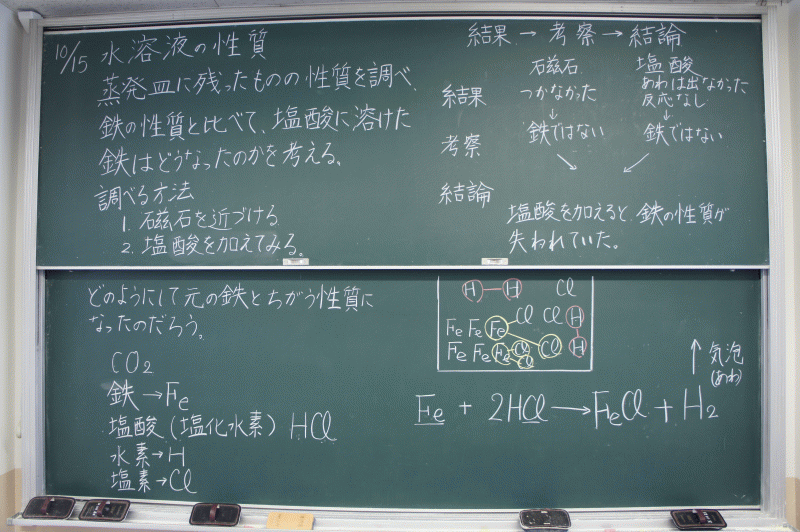 10/15 水溶液の性質
蒸発皿に残ったものの性質を調べ、
鉄の性質と比べて、塩酸に溶けた
鉄はどうなったのかを考える。
調べる方法
1. 石磁石を近づける
2. 塩酸を加えてみる。
結果 → 考察 → 結論
結果
石磁石
つかなかった
↓
塩酸
あわは出なかった
反応なし
↓
考察
鉄ではない
鉄ではない
結論
塩酸を加えると、鉄の性質が
失われていた。
どのようにして元の鉄とちがう性質に
なったのだろう。
CO2
鉄→Fe
塩酸(塩化水素) HCl
水素→H
塩素→Cl
H H Cl
Fe Fe Fe Cl Cl H
Fe Fe Fe Cl Cl Cl H
↑ 気泡
(あわ)
Fe + 2HCl → FeCl + H2